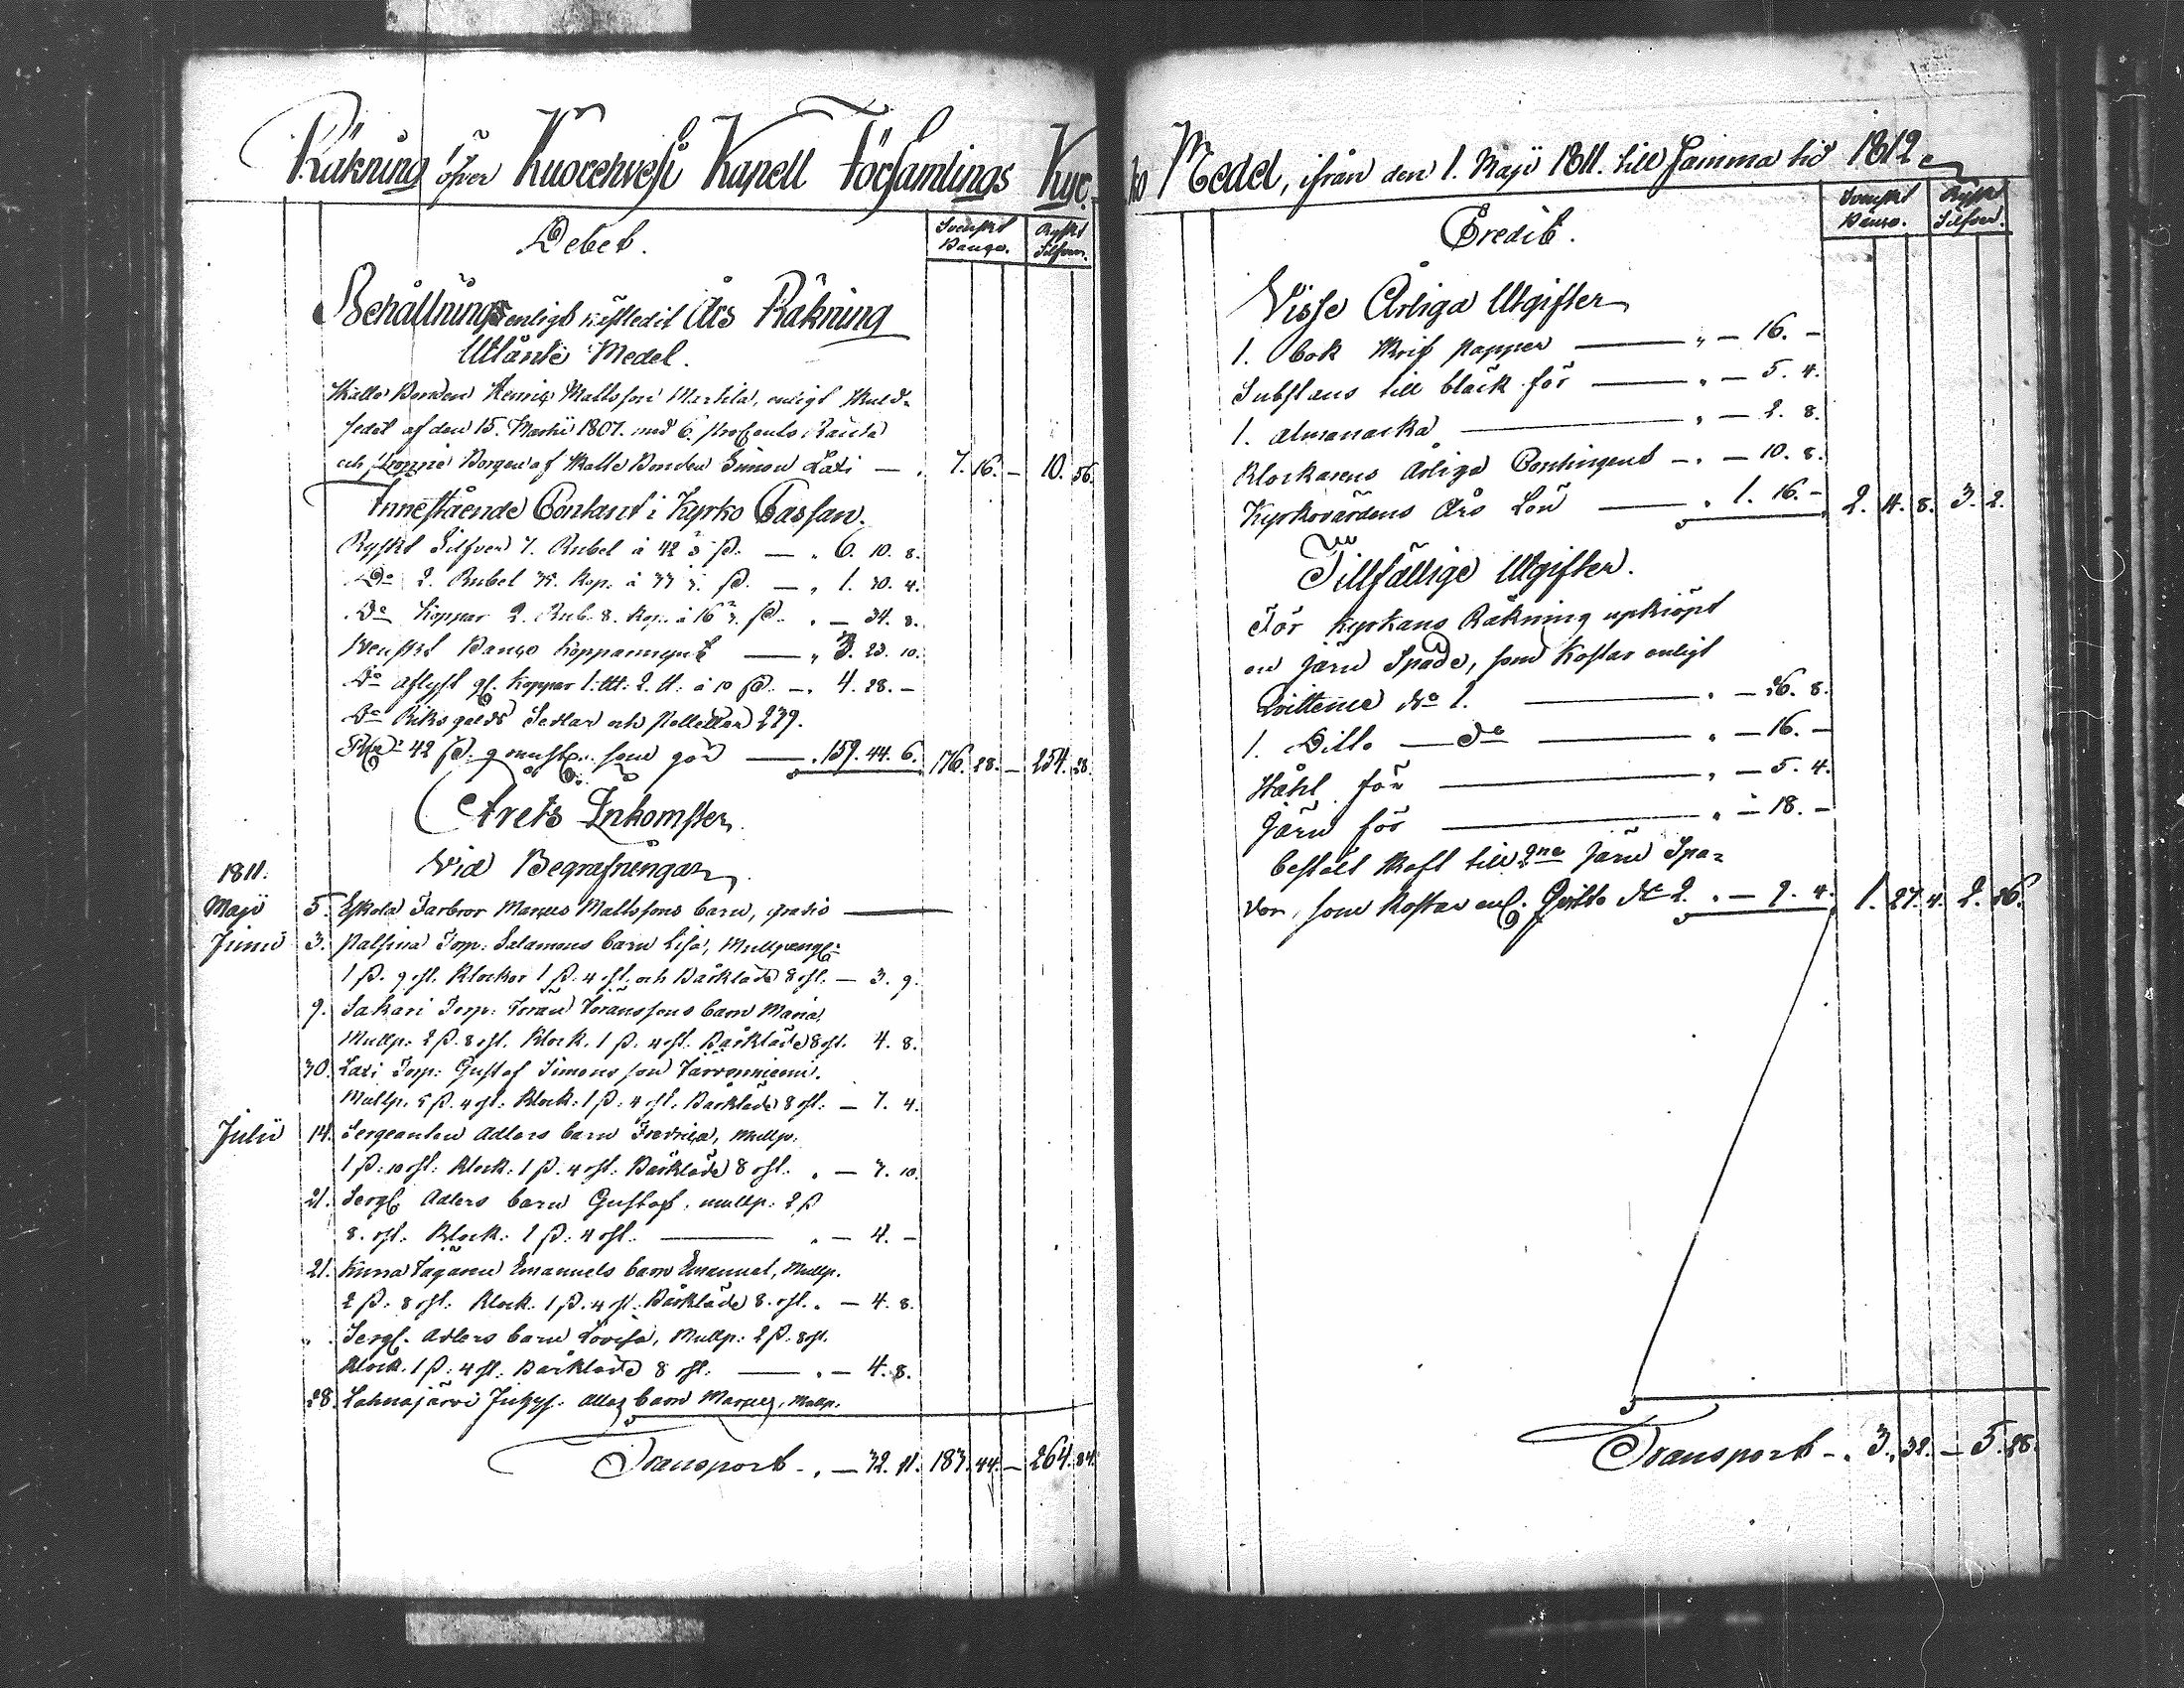 Räkning öfver Kuorehvesi Kapell Församlings Kyr-
Debet.
Svenskt Banco. Ryskt Silfver.
Behållning enligt nästledit Års Räkning
Utlånte Medel.
Skatte Bonden Henric Mattsson Marttila, enligt Skuld-
sedel af den 15. Martii 1807. med 6. proCents Ränta
och Borgen af Skatte Bonden Simon Laxi — . 7. 16. — 10. 56.
Innestående Contant i Kyrko Cassan.
Ryskt Silfver 7. Rubel à 42 ß. — „ 6. 10. 8.
Do 2. Rubel 35. Kop. à ß. — „ 1. 30. 4.
Do Koppar 2. Rub. 8. Kop. à 16 ß. „ — 34. 8.
Svenskt Banco Kopparmynt — „ 3. 23. 10.
Do aflyst Koppar à 10 ß. — . 4. 28. —
Do Riksgälds Sedlar och Polletter 239.
42 ß. som gör — . 159. 44. 6. 176. 28. — 254. 28.
Årets Inkomster
Vid Begrafningar
1811.
Maji 5. Eskola Farbror Marcus Mattssons barn, gratis —
Junii 3. Palsina Torp: Salomons barn Lisa, Mullpengr:
1 ß. 9 rst. Klockor 1 ß. 4 rst. och Bårkläde 8 rst. — 3. 9.
9. Sakari Torp: Göran Göranssons barn Maria,
Mullp: 2 ß. 8 rst. Klock. 1 ß. 4 rst. Bårkläde 8 rst. 4. 8.
30. Laxi Torp: Gustaf Simonsson Järvenniemi.
Mullp. 5 ß. 4 rst. Klock: 1 ß: 4 rst. Bårkläde 8 rst: — 7. 4.
Julii 14. Sergeanten Adlers barn Fredrica, Mullp:
1 ß: 10 rst: Klock: 1 ß. 4 rst: Bårkläde 8 rst. . — 3. 10.
21. Serg. Adlers barn Gustaf, mullp: 2 ß
8. rst. Klock: 1 ß: 4 rst. — . — 4. —
21. Emanuels barn Emanuel, Mullp.
2 ß: 8 rst: Klock. 1 ß. 4 rst: Bårkläde 8. rst. . — 4. 8.
„ Serg. Adlers barn Lovisa, Mullp: 2 ß: 8 rst.
Klock. 1 ß: 4 rst. Bårkläde 8 rst. — . — 4. 8.
28. Lahnajärvi barn Marcus, Mullp.
Transport — . — 32. 11. 183. 44. — 264. 84.
ko Medel, ifrån den 1. Maji 1811. till samma tid 1812.
Credit.
Svenskt Banco. Ryskt Silfver.
Visse Årliga Utgifter
1. bok Skrif papper — „ — 16. —
Substans till bläck för — „ — 5. 4.
1. almanacka — „ — 2. 8.
Klockarens Årliga Contingent — . — 10. 8.
Kyrkovärdens Års Lön — . 1. 16. — 2. 4. 8. 3. 2.
Tillfällige Utgifter.
För Kyrkans Räkning upkiöpt
en järn Spade, som Kostar enligt
Qvittence No 1. — . — 26. 8.
1. Ditto — do — „ — 16. —
Stähl för — „ — 5. 4.
Järn för — „ — 18. —
bestält Skaft till 2ne järn Spa-
dor, som Kostar enl. Qvitto No 2. . — 9. 4. 1. 27. 4. 2. 26.
Transport — . 3. 32. — 5. 28.